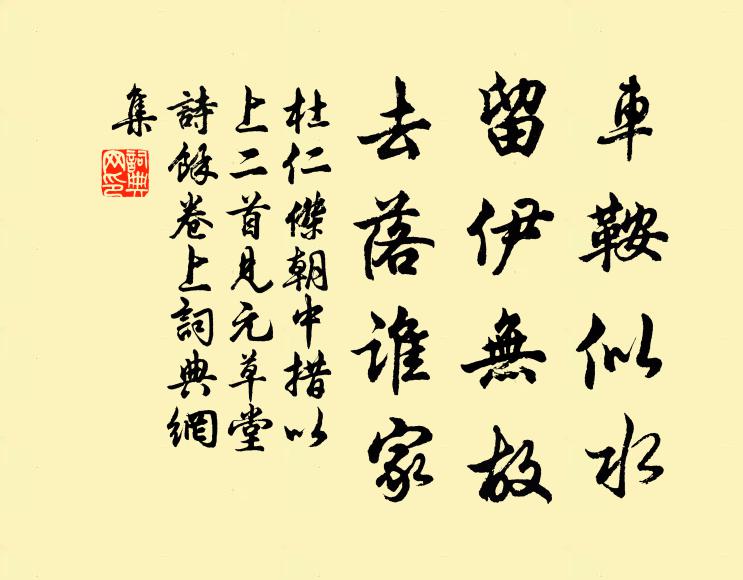 車鞍似水
留伊無故
去落誰家
杜仁傑朝中措以
上二首見元草堂
詩餘卷上詞典網
集
詞典網印